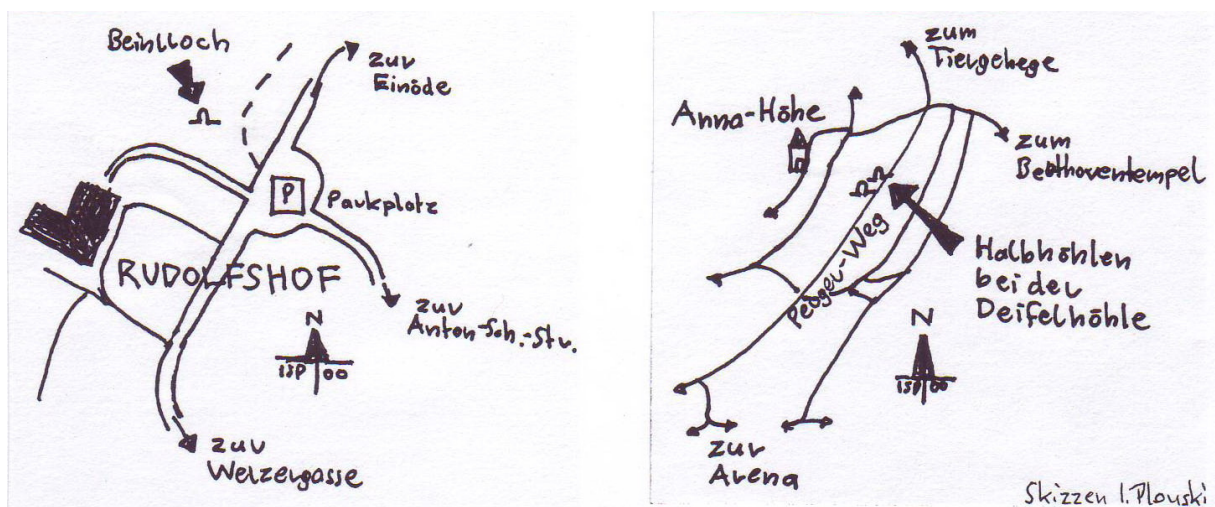 Beinlloch
zur
Einöde
P
Parkplatz
RUDOLFSHOF
zur
Anton-Sch.-Str.
N
ISP 00
zur
Welzergasse
zum
Tiergehege
Anna-Höhe
zum
Beethoventempel
Halbhöhlen
bei der
Deifelhöhle
N
ISP 00
zur
Arena
Skizzen I. Plouski